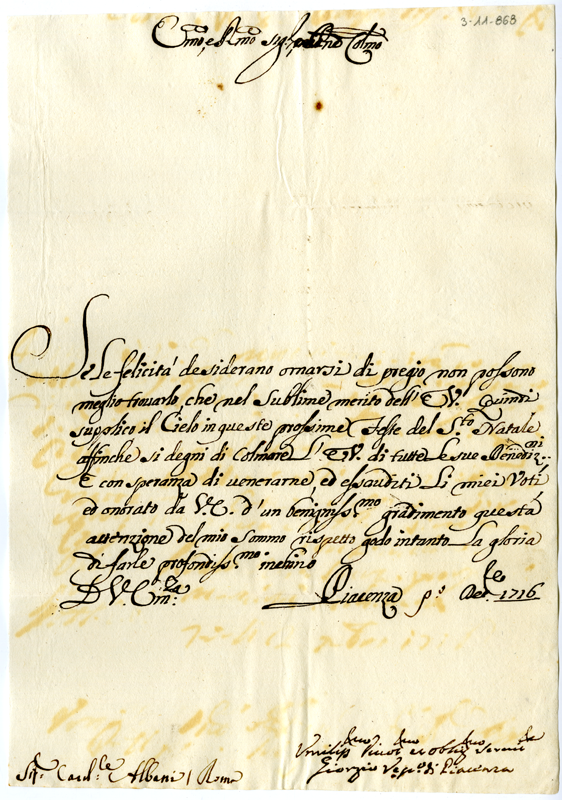 3-11-868
Em̃o, e Rmo Sig.r, Colmo
Se le felicitá desiderano ornarsi di pregio non possono
meglio trouarlo, che nel sublime merito dell' E V.ª Quindi
suplico il Cielo in queste prossime Feste del S.to Natale
affinche si degni di colmare L' E.V. di tutte le sue Benediz.ni
E con speranza di uenerarne, ed essauditi li miei Voti
ed onorato da V.E. d'un benigniss.mo gradimento questa
attenzione del mio sommo rispetto godo intanto la gloria
di farle profondiss.mo inchino
D V. Em.za Piacenza p.o Xbre 1716
Umiliss.o Diuot.o et obblig.o Seruid.re
Sig.r Card.le Albani / Roma Giorgio Vesc.o di Piacenza